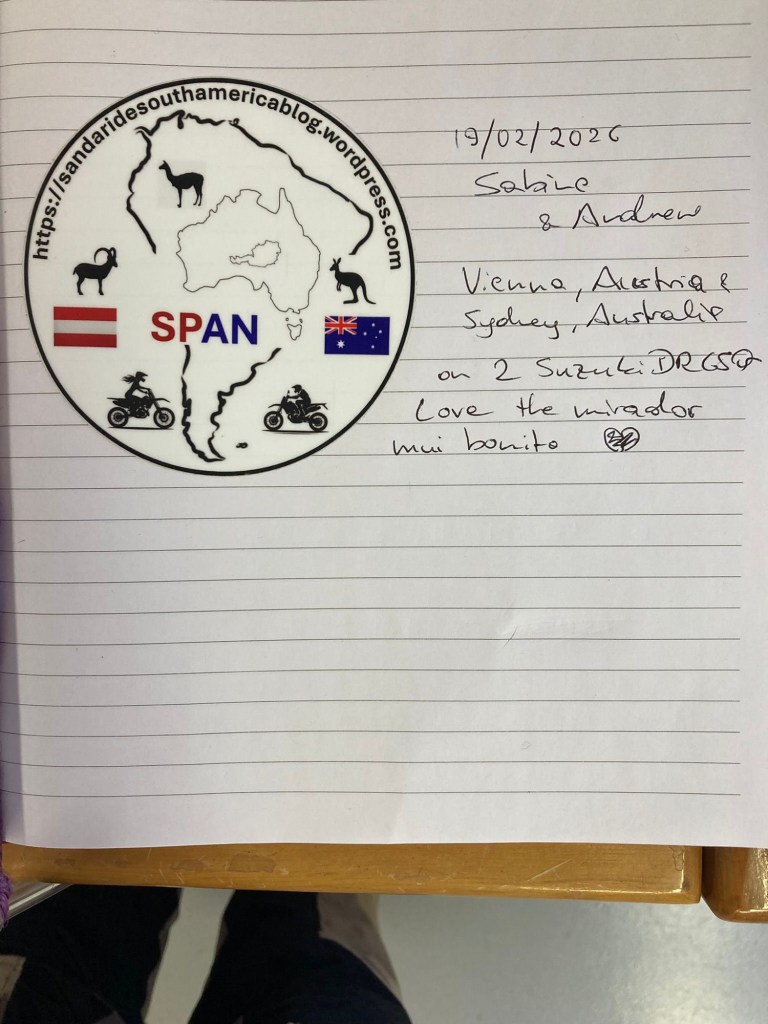 https://sandaridesouthamericablog.wordpress.com
SPAN
19/02/2026
Sabine
& Andrew
Vienna, Austria &
Sydney, Australia
on 2 Suzuki DR650
Love the mirador
mui bonito